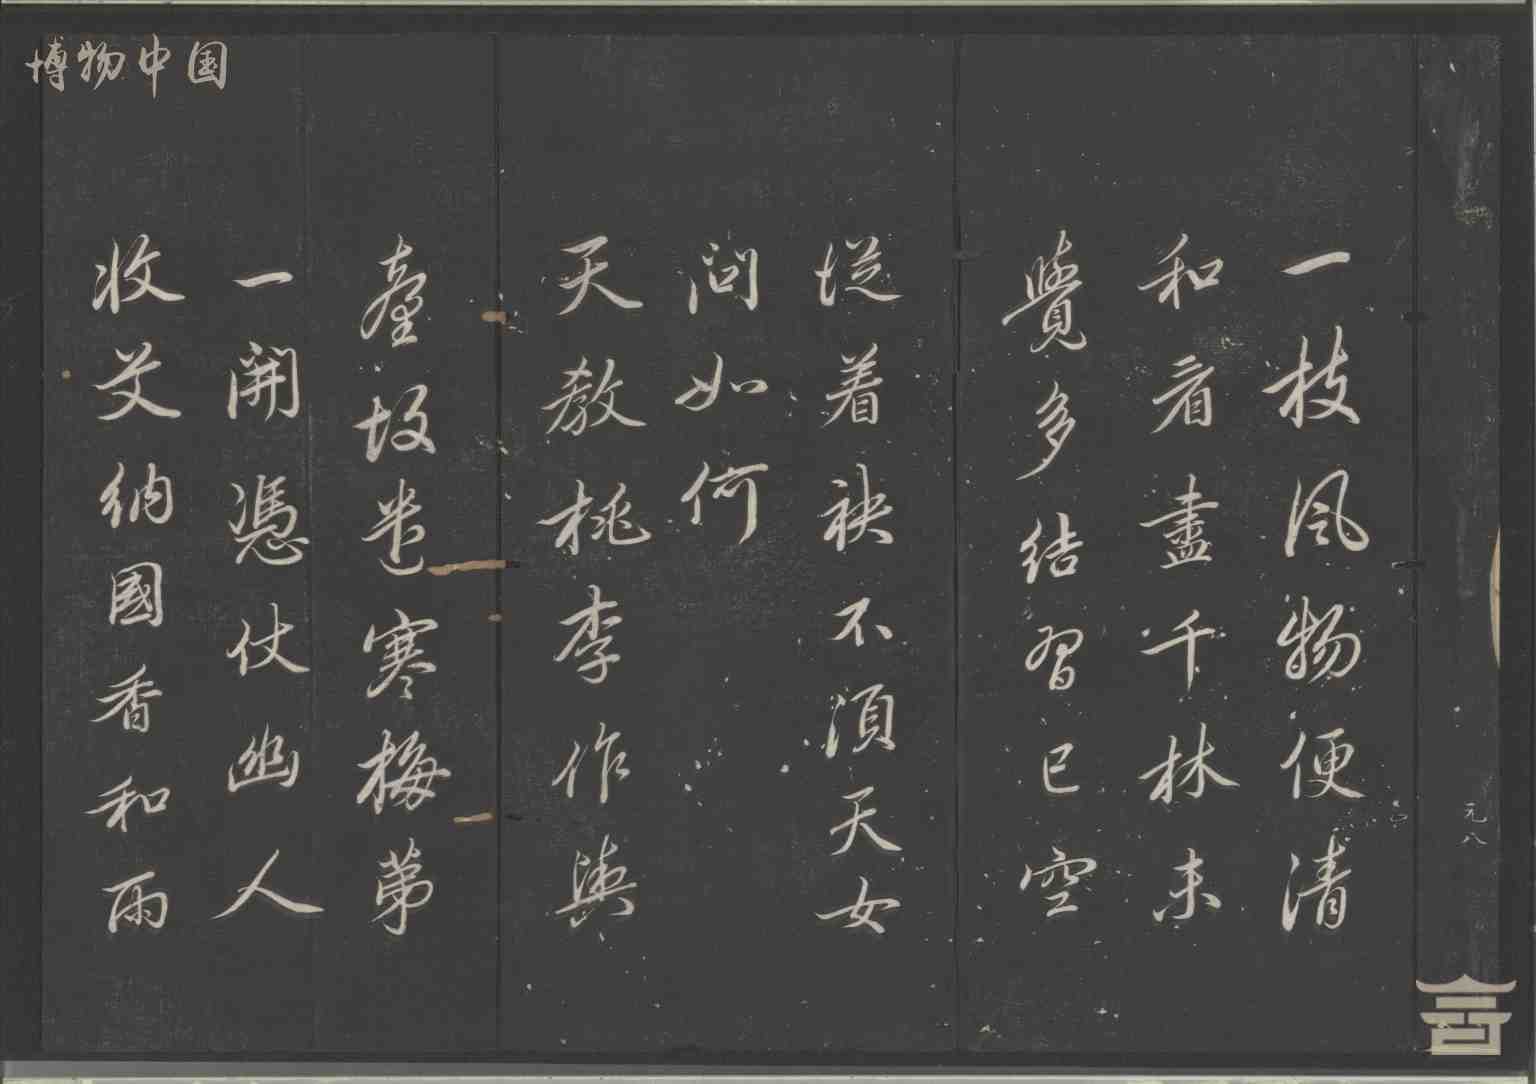 博物中国
一枝风物便清
和看盡千林未
覺多結習已空
從着袂不須天女
问如何
天教桃李作輿
臺故遣寒梅第
一開憑仗幽人
收艾纳國香和雨
元八